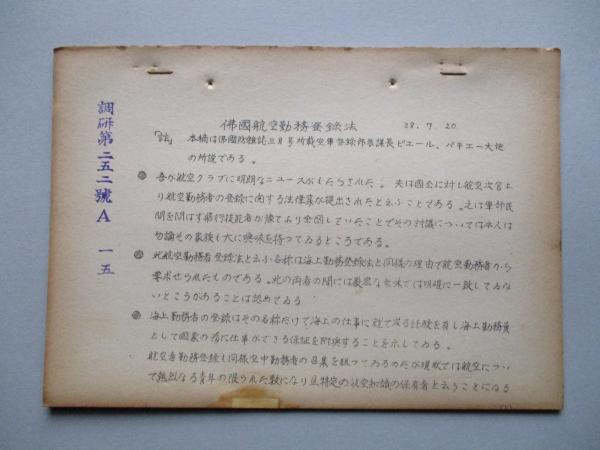 調研第二五二號A 一五
佛國航空勤務登録法 28.7.20.
「註」 本稿は佛國防雑誌三月号所載空軍登録部長課長ピエール、パキエー大佐
の所説である。
◎ 吾が航空クラブに明朗なニュースがもたらされた。夫は國会に対し航空次官よ
り航空勤務者の登録に関する法律案が提出されたと云ふことである。之は軍部民
間を問はず飛行従業者が豫てより企図していたことでその討議については本人は
勿論その家族も大に興味を持つてゐるところである。
◎ 此航空勤務者登録法と云ふ名称は海上勤務登録法と同様の理由で航空勤務者から
要求せられたものである。此の両者の間には厳密な意味では明確に一致してゐな
いところがあることは認めてゐる
◎ 海上勤務者の登録はその名称だけで海上の仕事に就て或る経験を有し海上勤務員
として國家の為に仕事ができる保証を附与することを示してゐる。
航空者勤務登録も同様空中勤務者の召集を狙つてゐるのだが現状では航空につい
て熱烈なる青年の限られた数になり且特定の航空知識の保有者と云ふことになる
(1)